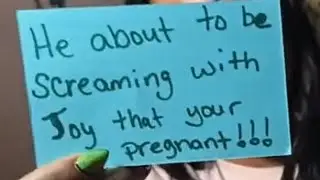 He about to be
screaming with
Joy that your
pregnant!!!